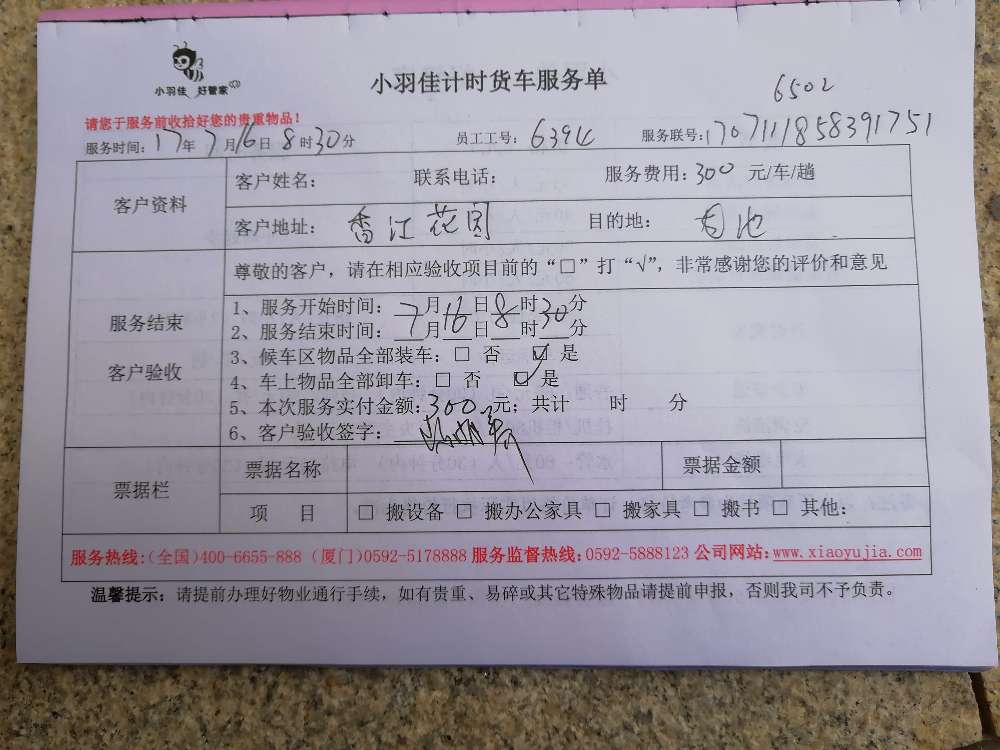 小羽佳 好管家
小羽佳计时货车服务单
6502
请您于服务前收拾好您的贵重物品！
服务时间：17年7月16日8时30分 员工工号：6394 服务联号：1707111858391751
客户资料
客户姓名： 联系电话： 服务费用：300 元/车/趟
客户地址：香江花园 目的地：
服务结束
客户验收
尊敬的客户，请在相应验收项目前的“□”打“√”，非常感谢您的评价和意见
1、服务开始时间：7月16日8时30分
2、服务结束时间：月日时分
3、候车区物品全部装车：□ 否 ☑ 是
4、车上物品全部卸车：□ 否 ☑ 是
5、本次服务实付金额：300元；共计 时 分
6、客户验收签字：
票据栏
票据名称 票据金额
项 目 □ 搬设备 □ 搬办公家具 □ 搬家具 □ 搬书 □ 其他：
服务热线:(全国)400-6655-888 (厦门)0592-5178888 服务监督热线:0592-5888123 公司网站:www.xiaoyujia.com
温馨提示：请提前办理好物业通行手续，如有贵重、易碎或其它特殊物品请提前申报，否则我司不予负责。